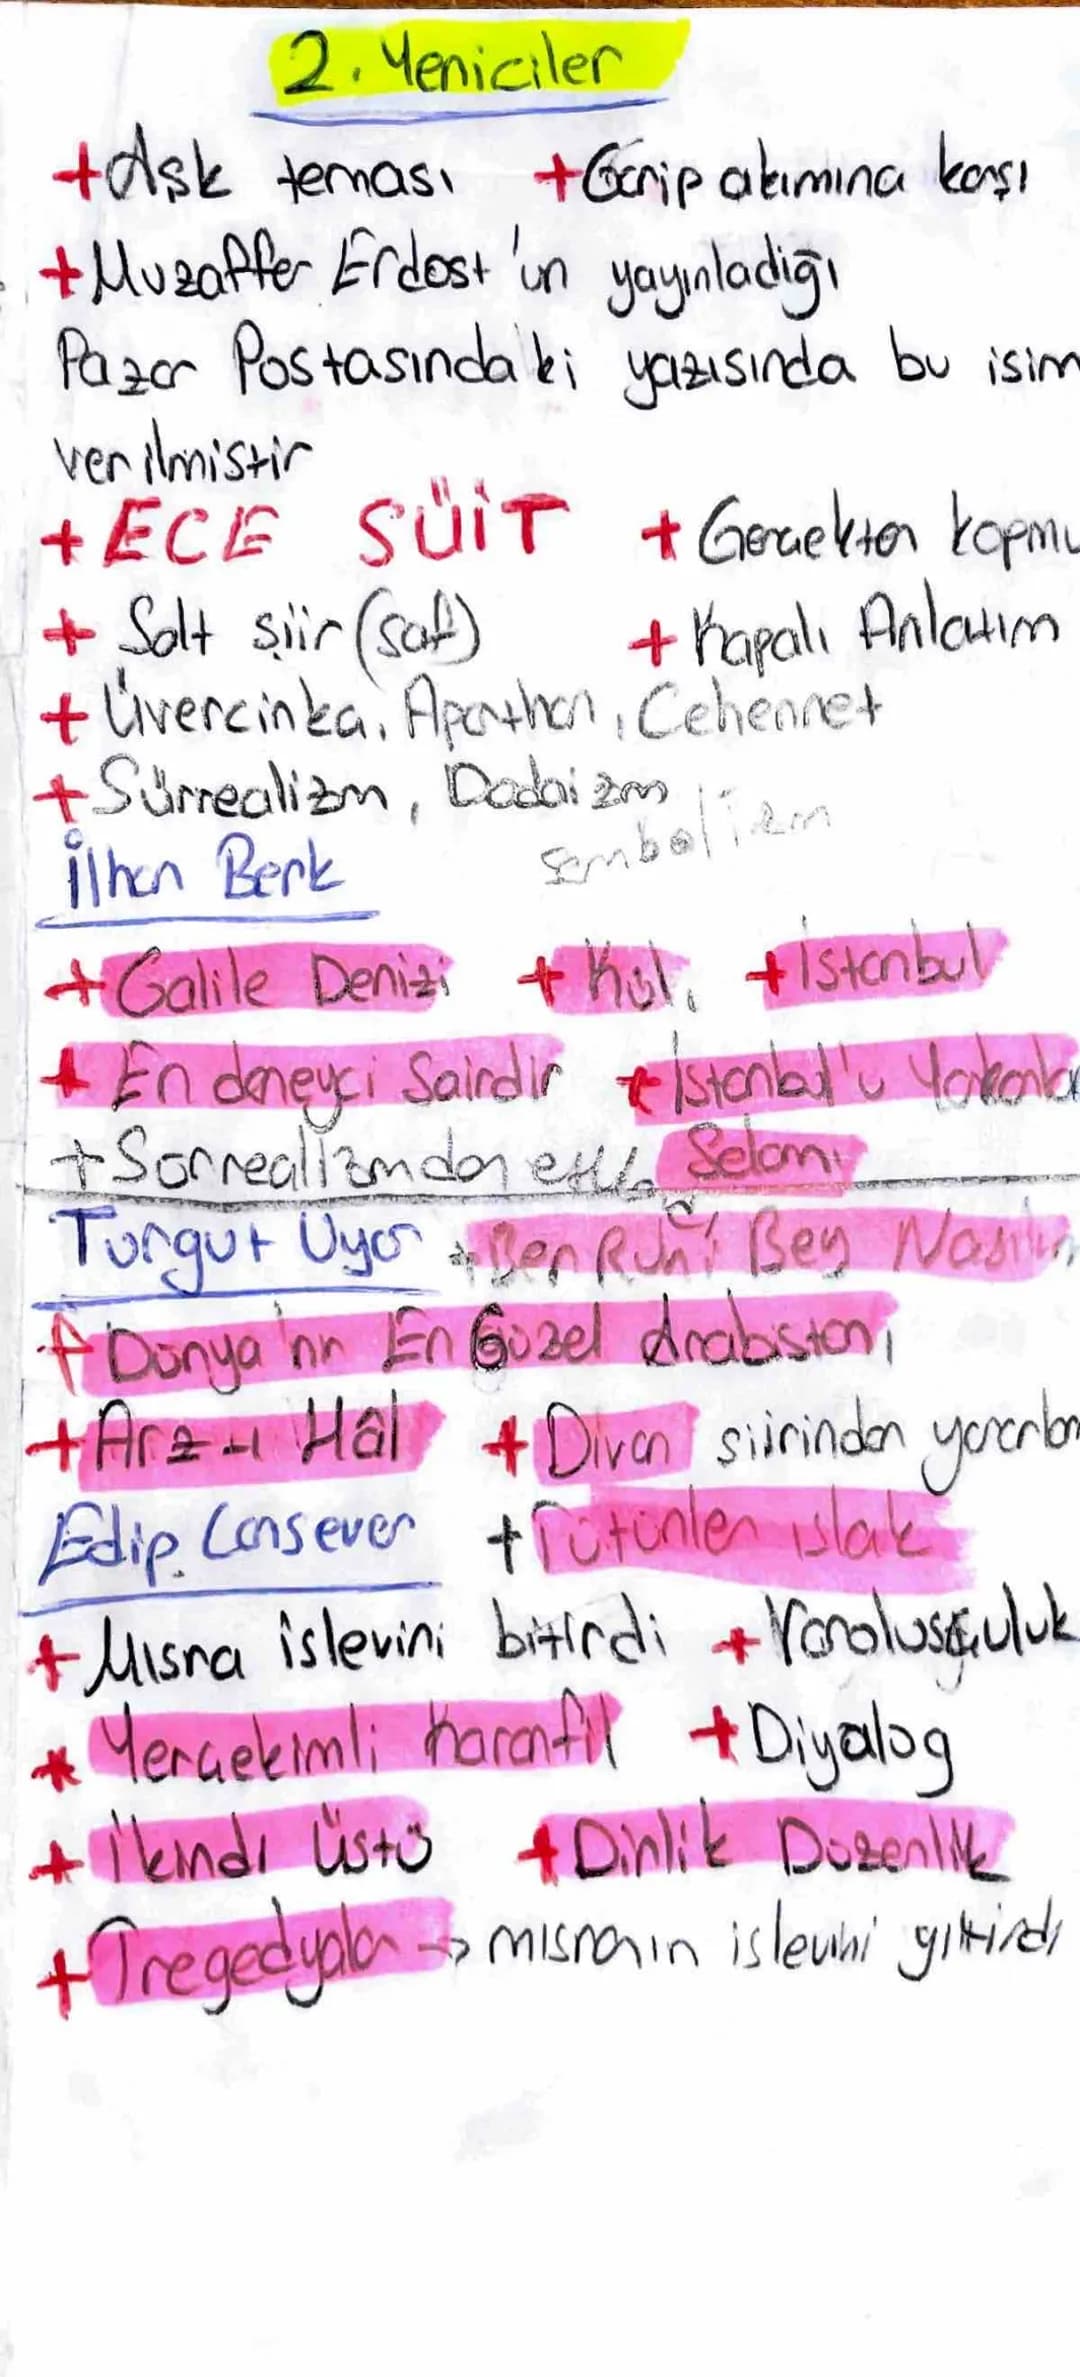 2. Yeniciler
+Aşk teması +Garip akımına karşı
+Muzaffer Erdost'un yayınladığı
Pazar Postasında'ki yazısında bu isim
verilmistir
+ ECE SÜİT + Gerçekten kopmu
+ Salt şiir (saf) + Kapalı Anlatım
+ Üvercinka, Aparthan, Cehennet
+ Sürrealizm, Dadaizm
sembolizm
İlhan Berk
+ Galile Denizi + Kül, + İstanbul
+ En deneyci Sairdir +
+ Sürrealizmden Selamı
Turgut Uyar + Ben Ruhi Bey Nasılım
+ Dünya'nın En Güzel Arabistanı
+ Arz-ı Hâl + Divan siirinden
Edip Cansever + Tütünler ıslak
+ Mısra islevini bitirdi + Varolusçuluk
* Yerçekimli Karanfil + Diyalog
+ İkindi Üstü + Dirlik Düzenlik
+ Tregedyalar → mısranın islevini yitirdi